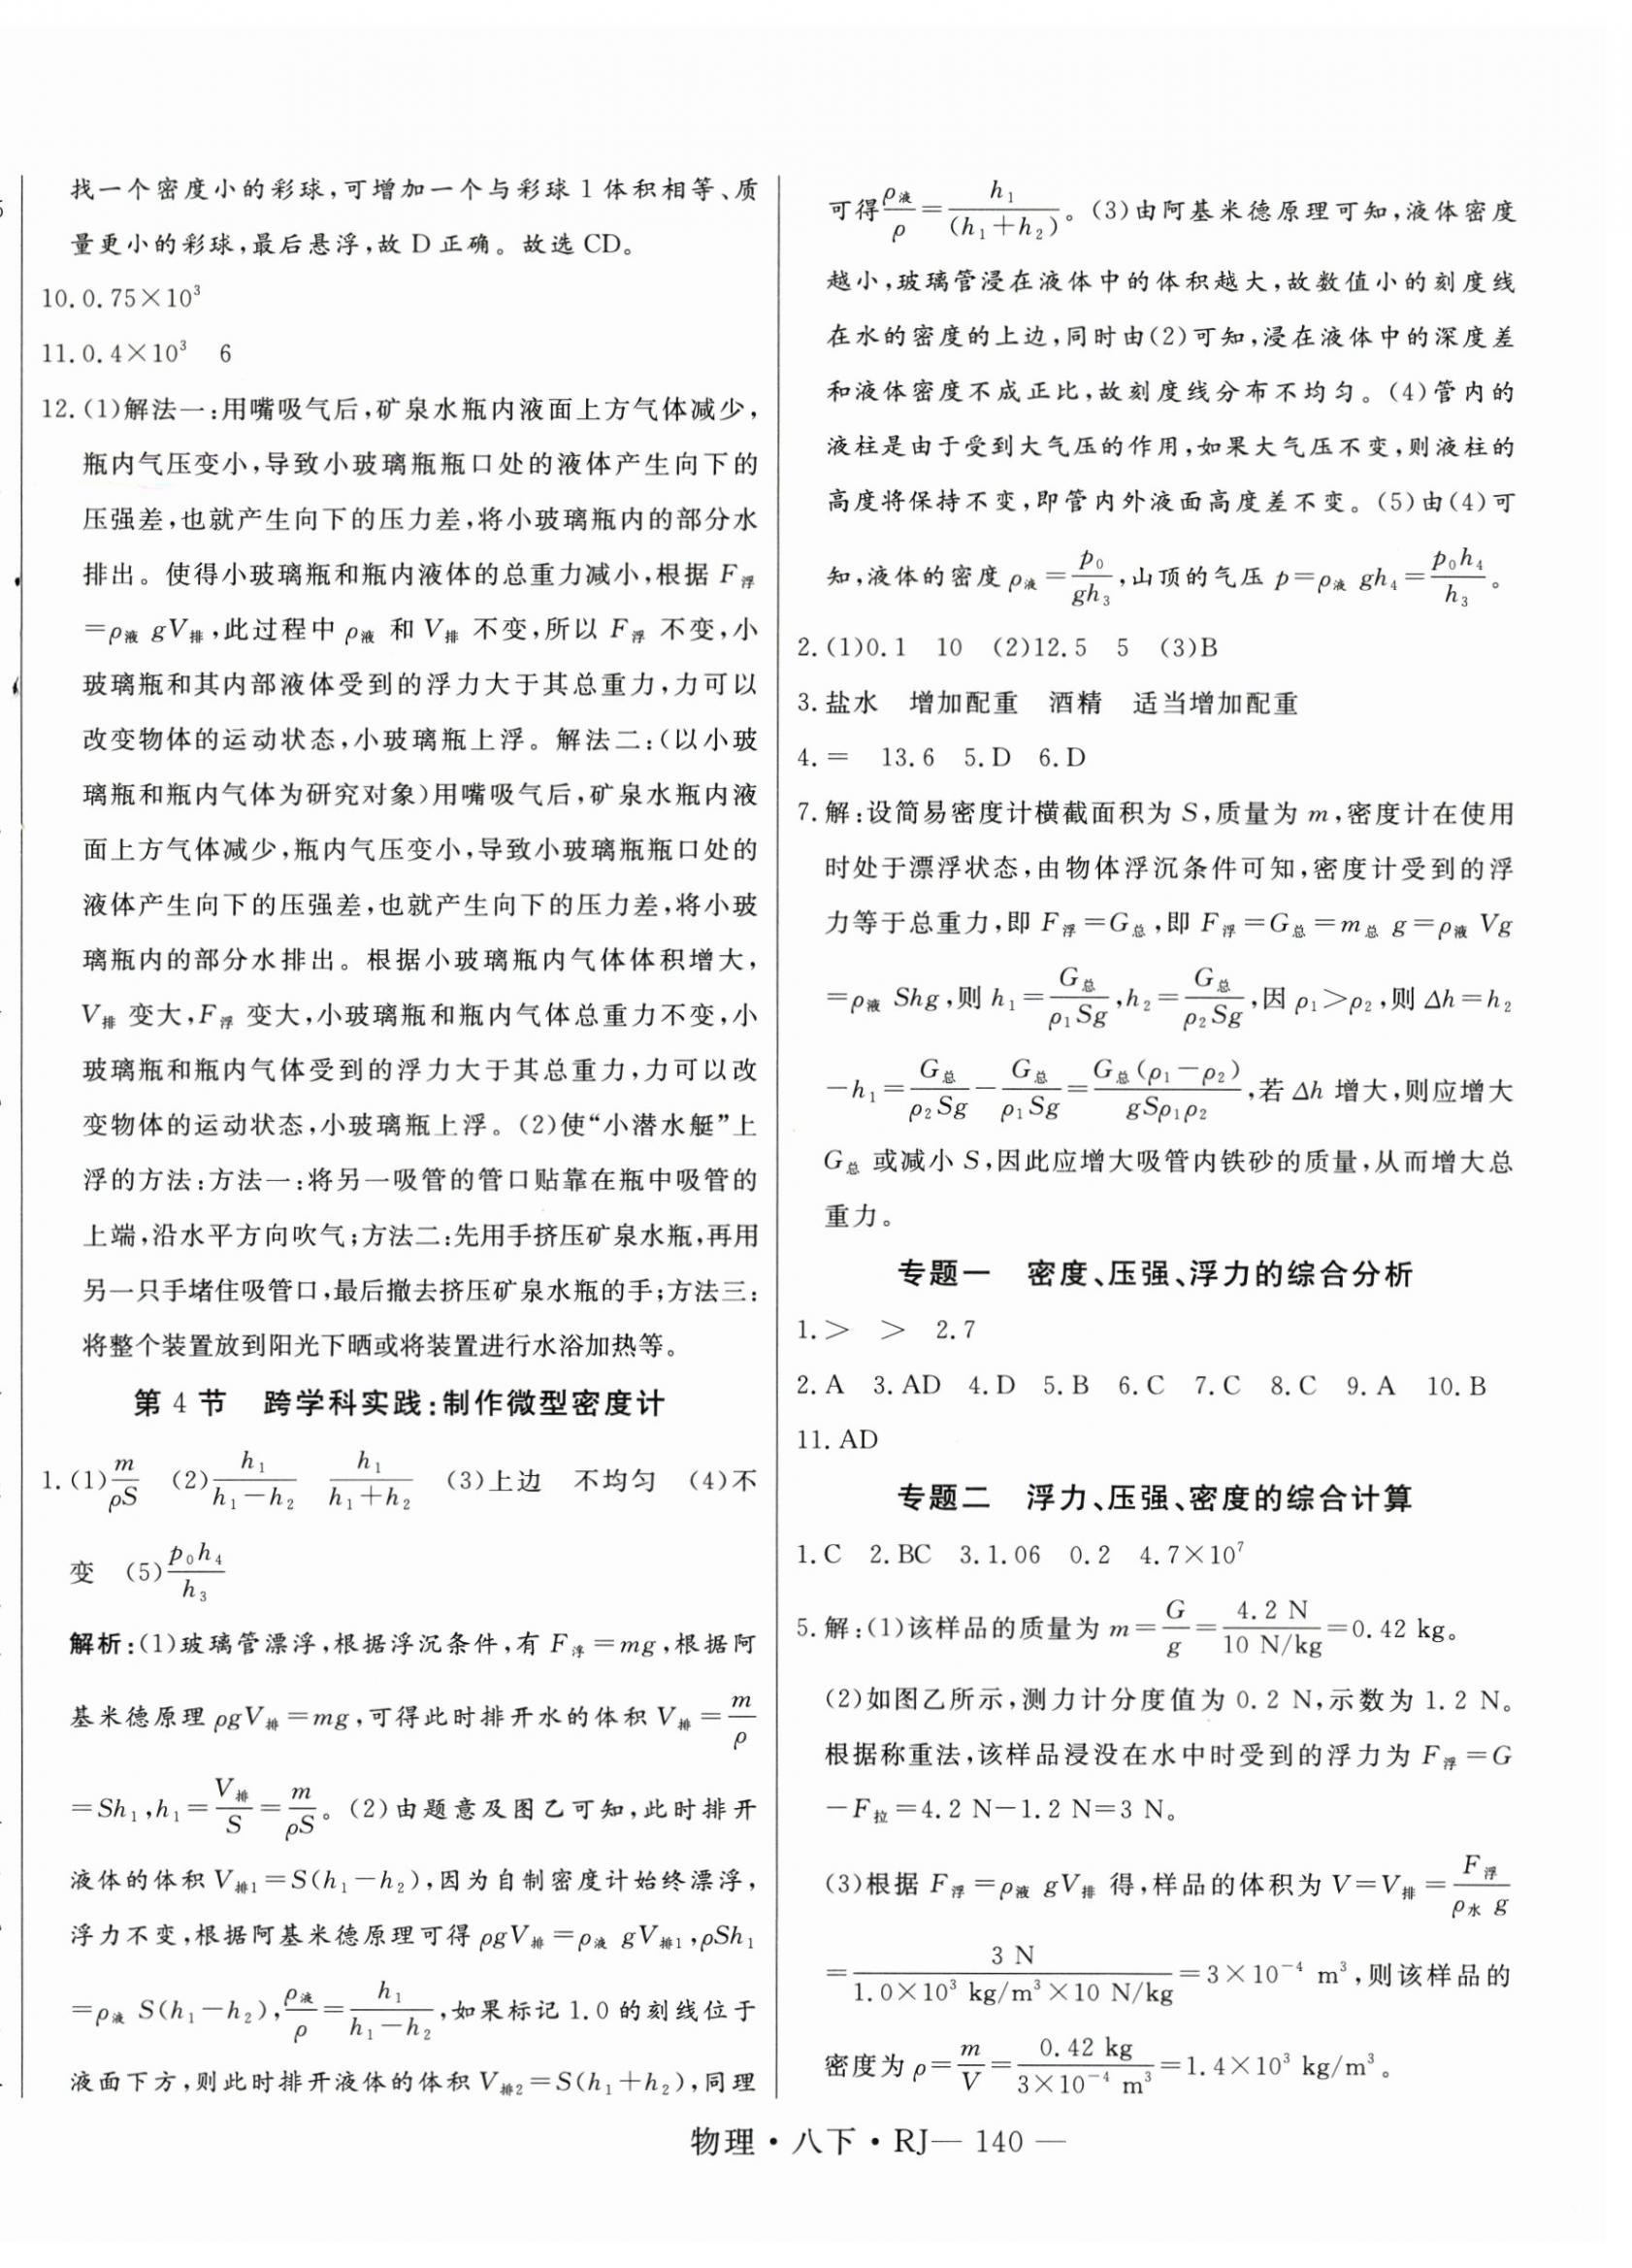 找一个密度小的彩球,可增加一个与彩球1体积相等、质
量更小的彩球,最后悬浮,故 D 正确。故选 CD。
10. 0.75×10³
11. 0.4×10³　6
12. (1)解法一:用嘴吸气后,矿泉水瓶内液面上方气体减少,
瓶内气压变小,导致小玻璃瓶瓶口处的液体产生向下的
压强差,也就产生向下的压力差,将小玻璃瓶内的部分水
排出。使得小玻璃瓶和瓶内液体的总重力减小,根据 F浮
=ρ液 gV排,此过程中 ρ液 和 V排 不变,所以 F浮 不变,小
玻璃瓶和其内部液体受到的浮力大于其总重力,力可以
改变物体的运动状态,小玻璃瓶上浮。解法二:(以小玻
璃瓶和瓶内气体为研究对象)用嘴吸气后,矿泉水瓶内液
面上方气体减少,瓶内气压变小,导致小玻璃瓶瓶口处的
液体产生向下的压强差,也就产生向下的压力差,将小玻
璃瓶内的部分水排出。根据小玻璃瓶内气体体积增大,
V排 变大,F浮 变大,小玻璃瓶和瓶内气体总重力不变,小
玻璃瓶和瓶内气体受到的浮力大于其总重力,力可以改
变物体的运动状态,小玻璃瓶上浮。(2)使“小潜水艇”上
浮的方法:方法一:将另一吸管的管口贴靠在瓶中吸管的
上端,沿水平方向吹气;方法二:先用手挤压矿泉水瓶,再用
另一只手堵住吸管口,最后撤去挤压矿泉水瓶的手;方法三:
将整个装置放到阳光下晒或将装置进行水浴加热等。
第 4 节　跨学科实践:制作微型密度计
1. (1)m/ρS　(2)h₁/(h₁－h₂)　h₁/(h₁＋h₂)　(3)上边　不均匀　(4)不
变　(5)p₀h₄/h₃
解析:(1)玻璃管漂浮,根据浮沉条件,有 F浮=mg,根据阿
基米德原理 ρgV排=mg,可得此时排开水的体积 V排=m/ρ
=Sh₁,h₁=V排/S=m/ρS。(2)由题意及图乙可知,此时排开
液体的体积 V排1=S(h₁－h₂),因为自制密度计始终漂浮,
浮力不变,根据阿基米德原理可得 ρgV排=ρ液 gV排1,ρSh₁
=ρ液 S(h₁－h₂),ρ液/ρ=h₁/(h₁－h₂),如果标记 1.0 的刻线位于
液面下方,则此时排开液体的体积 V排2=S(h₁＋h₂),同理
可得ρ液/ρ=h₁/(h₁＋h₂)。(3)由阿基米德原理可知,液体密度
越小,玻璃管浸在液体中的体积越大,故数值小的刻度线
在水的密度的上边,同时由(2)可知,浸在液体中的深度差
和液体密度不成正比,故刻度线分布不均匀。(4)管内的
液柱是由于受到大气压的作用,如果大气压不变,则液柱的
高度将保持不变,即管内外液面高度差不变。(5)由(4)可
知,液体的密度 ρ液=p₀/gh₃,山顶的气压 p=ρ液 gh₄=p₀h₄/h₃。
2. (1)0.1　10　(2)12.5　5　(3)B
3. 盐水　增加配重　酒精　适当增加配重
4. =　13.6　5. D　6. D
7. 解:设简易密度计横截面积为 S,质量为 m,密度计在使用
时处于漂浮状态,由物体浮沉条件可知,密度计受到的浮
力等于总重力,即 F浮=G总,即 F浮=G总=m总 g=ρ液 Vg
=ρ液 Shg,则 h₁=G总/ρ₁Sg,h₂=G总/ρ₂Sg,因 ρ₁>ρ₂,则 Δh=h₂
－h₁=G总/ρ₂Sg－G总/ρ₁Sg=G总(ρ₁－ρ₂)/gSρ₁ρ₂,若 Δh 增大,则应增大
G总 或减小 S,因此应增大吸管内铁砂的质量,从而增大总
重力。
专题一　密度、压强、浮力的综合分析
1. >　>　2.7
2. A　3. AD　4. D　5. B　6. C　7. C　8. C　9. A　10. B
11. AD
专题二　浮力、压强、密度的综合计算
1. C　2. BC　3. 1.06　0.2　4. 7×10⁷
5. 解:(1)该样品的质量为 m=G/g=4.2 N/10 N/kg=0.42 kg。
(2)如图乙所示,测力计分度值为 0.2 N,示数为 1.2 N。
根据称重法,该样品浸没在水中时受到的浮力为 F浮=G
－F拉=4.2 N－1.2 N=3 N。
(3)根据 F浮=ρ液 gV排 得,样品的体积为 V=V排=F浮/ρ水 g
=3 N/(1.0×10³ kg/m³×10 N/kg)=3×10⁻⁴ m³,则该样品的
密度为 ρ=m/V=0.42 kg/3×10⁻⁴ m³=1.4×10³ kg/m³。
物理·八下·RJ— 140 —